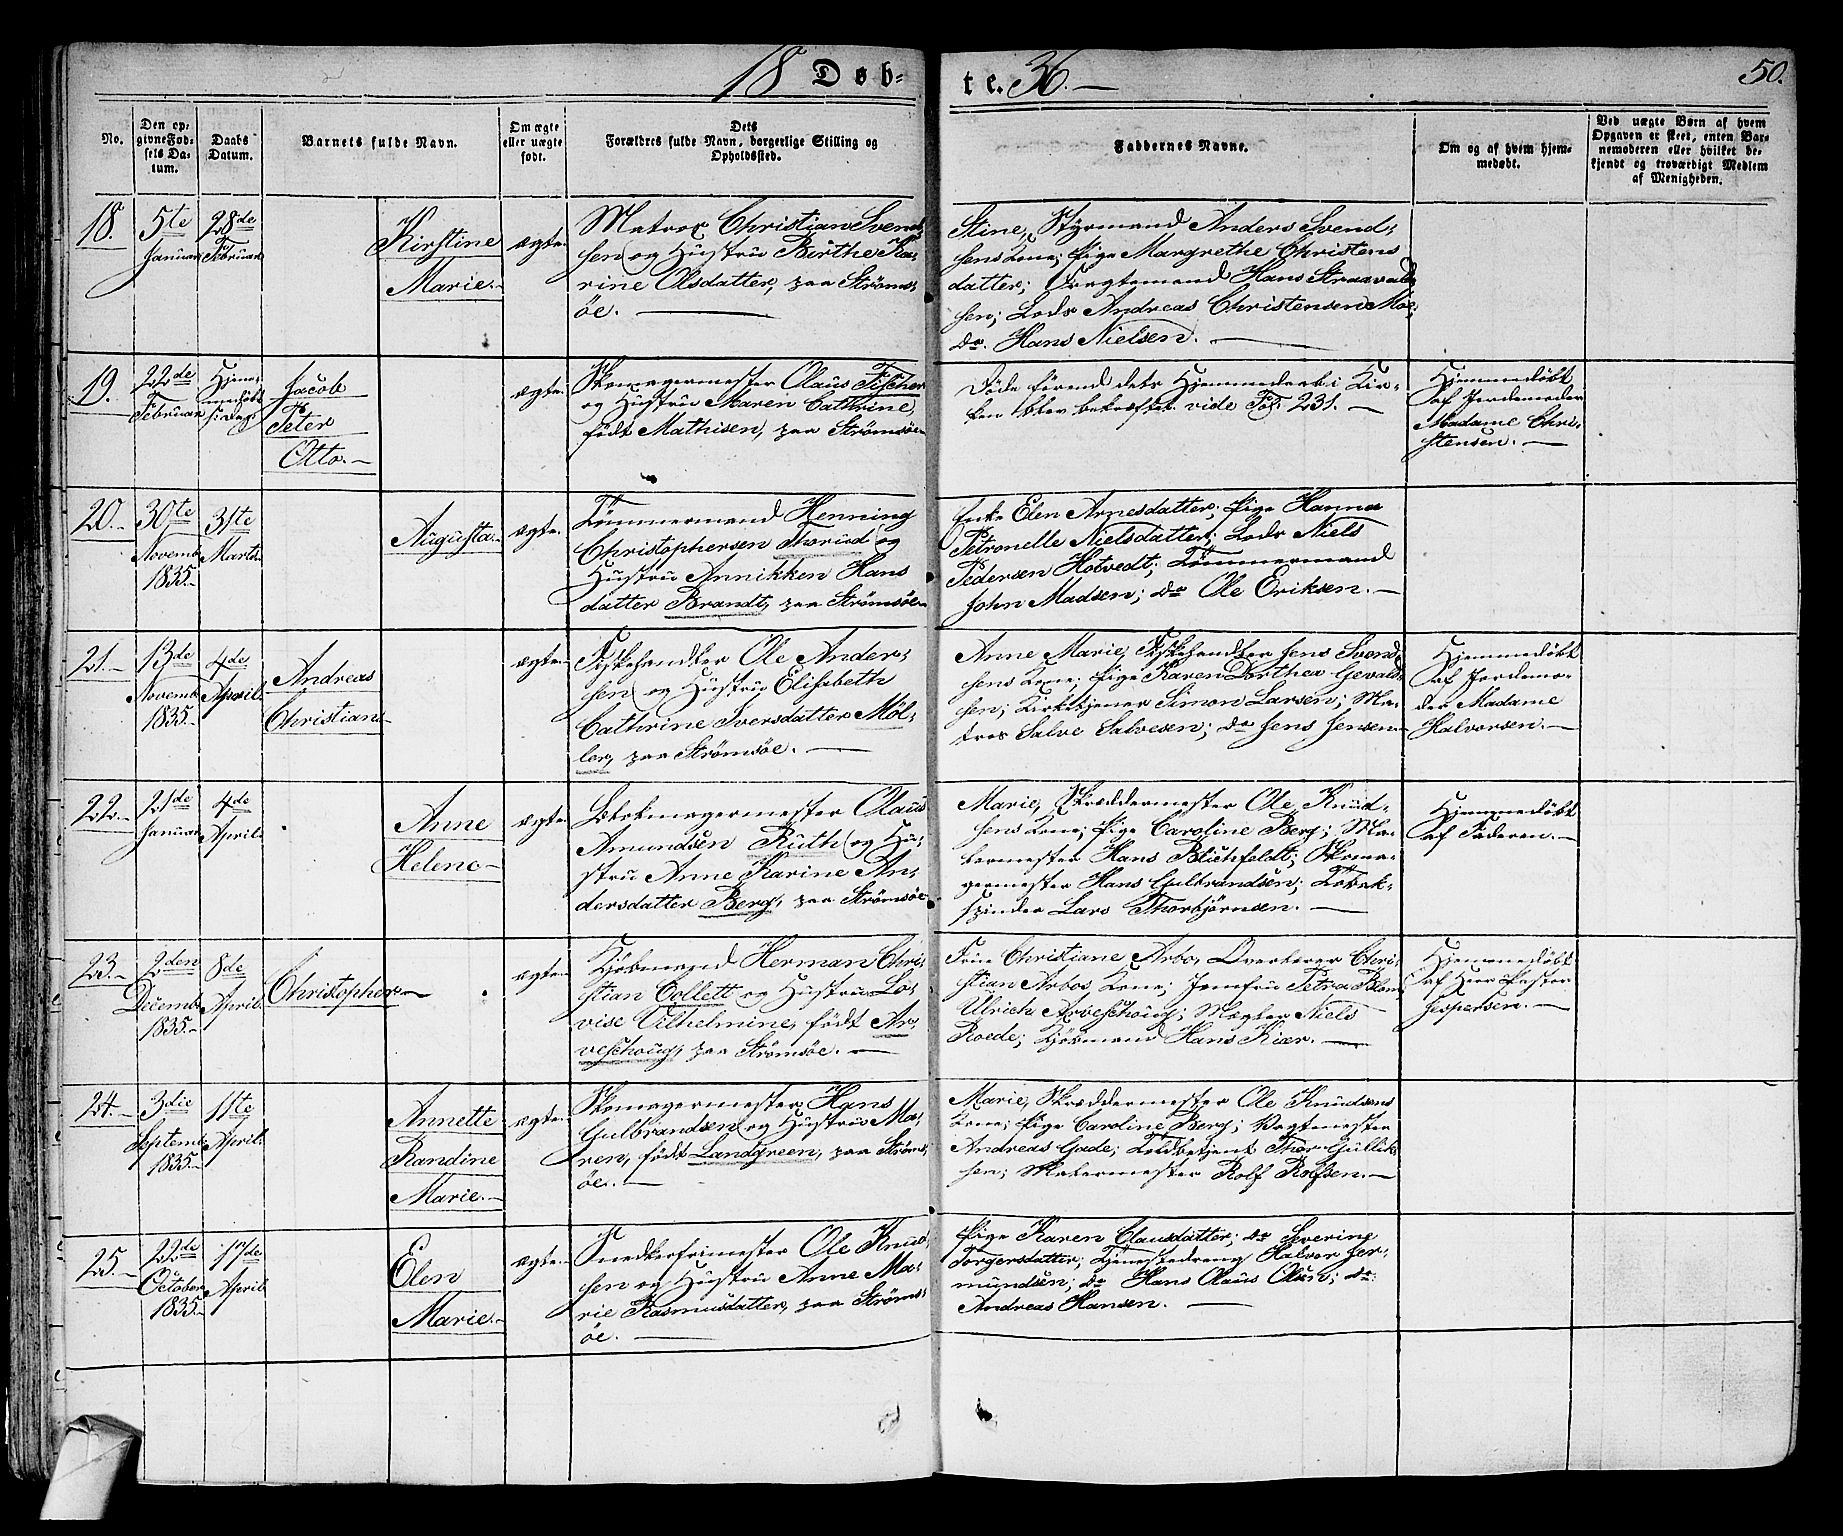 18 Døb=
te. 36.—
50.
No.
Den op=
givne Fød=
sels Da=
tum.
Daabs
Datum.
Barnets fulde Navn.
Om ægte
eller uægte
født.
Dets
Forældres fulde Navn, borgerlige Stilling og
Opholdssted.
Faddernes Navne.
Om og af hvem hjem=
medøbt.
Ved uægte Børn af hvem
Opgaven er skeet, enten Bar=
nemoderen eller hvilket be=
kjendt og troværdigt Medlem
af Menigheden.
18.
5te
Januar
28de
Februar
Kirstine
Marie.—
ægte.
Matros Christian Svend=
sen og Hustru Birthe Ka=
rine Olsdatter, paa Strøms=
øe.—
Stine, Styrmand Anders Svend=
sens Kone; Pige Margrethe Christens
datter; Hans
sen; Lods Andreas Christensen Moe;
do. Hans Nielsen.—
19.
22de
Februar
Hjem=
medøbt
Jacob
Peter
Otto.—
ægte.
Skomagermester Olaus Fischer
og Hustru Maren Cathrine,
født Mathisen, paa Strømsøe
Døde førend dets Hjemmedaab i Kir=
ken blev bekræftet. vide Fol. 231.—
Hjemmedøbt
af Jordemoder
Madame Chri=
stensen.—
20.—
30te
Novemb.
1835.—
31te
Marts
Augusta.—
ægte.
Tømmermand Henning
Christophersen Thorud og
Hustru Annikken Hans
datter Brandt, paa Strømsøe—
Enke Elen Arnesdatter; Pige Hanna
Petronelle Nielsdatter; Lods Niels
Pedersen Hotvedt; Tømmermand
John Madsen; do Ole Eriksen.—
21.—
13de
Novemb.
1835.—
4de
April.
Andreas
Christian.—
ægte.
Fiskehandler Ole Ander=
sen og Hustru Elisabeth
Cathrine Iversdatter Møl=
ler, paa Strømsøe.—
Anne Marie, Fiskehandler Jens Svend=
sens Kone; Pige Karen Dorthea Gevald=
sen; Kirketjener Simon Larsen; Ma=
tros Salve Salvesen; do Jens Jensen.—
Hjemmedøbt
af Jordemo=
der Madame
Halvorsen.—
22.—
21de
Januar
4de
April.
Anne
Helene—
ægte.
Tobakmagermester Olaus
Amundsen Ruth og Hu=
stru Anne Karine An=
dersdatter Berg, paa Strømsøe
Marie, Skræddermester Ole Knud=
sens Kone; Pige Caroline Berg; Ma=
lermester Hans Blichfeldt; Skoma=
germester Hans Gulbrandsen; Tobak=
spinder Lars Thorbjørnsen.—
Hjemmedøbt
af Faderen.—
23.—
2den
Decemb.
1835.—
8de
April.
Christopher.—
ægte.
Kjøbmand Herman Chri=
stian Collett og Hustru Lo=
vise Vilhelmine, født Ar=
veschoug, paa Strømsøe.—
Frue Christiane Arbo, Overtoldr Chri=
stian Arbos Kone; Jomfru Petra Blom;
Ulrich Arveschoug; Mægler Niels
Roede; Kjøbmand Hans Kiær.—
Hjemmedøbt
af Herr Pastor
Jespersen.—
24.—
3die
Septemb.
1835.—
11te
April.
Annette
Randine
Marie.—
ægte.
Skomagermester Hans
Gulbrandsen og Hustru Ma=
ren, født Landgreen, paa Strøms=
øe.—
Marie, Skræddermester Ole Knudsens
Kone; Pige Caroline Berg; Vagtmester
Andreas Gade; Toldbetjent Thor Gullik=
sen; Malermester Rolf Rolfsen.—
25.—
22de
October
1835.—
17de
April.
Elen
Marie.—
ægte.
Snedkerfrimester Ole Knud=
sen og Hustru Anne Ma=
rie Rasmusdatter, paa Strøms=
øe.—
Pige Karen Clausdatter; do Severine
Torgersdatter; Tjenestedreng Halvor Jer=
mundsen; do Hans Olaus Olsen; do.
Andreas Hansen.—